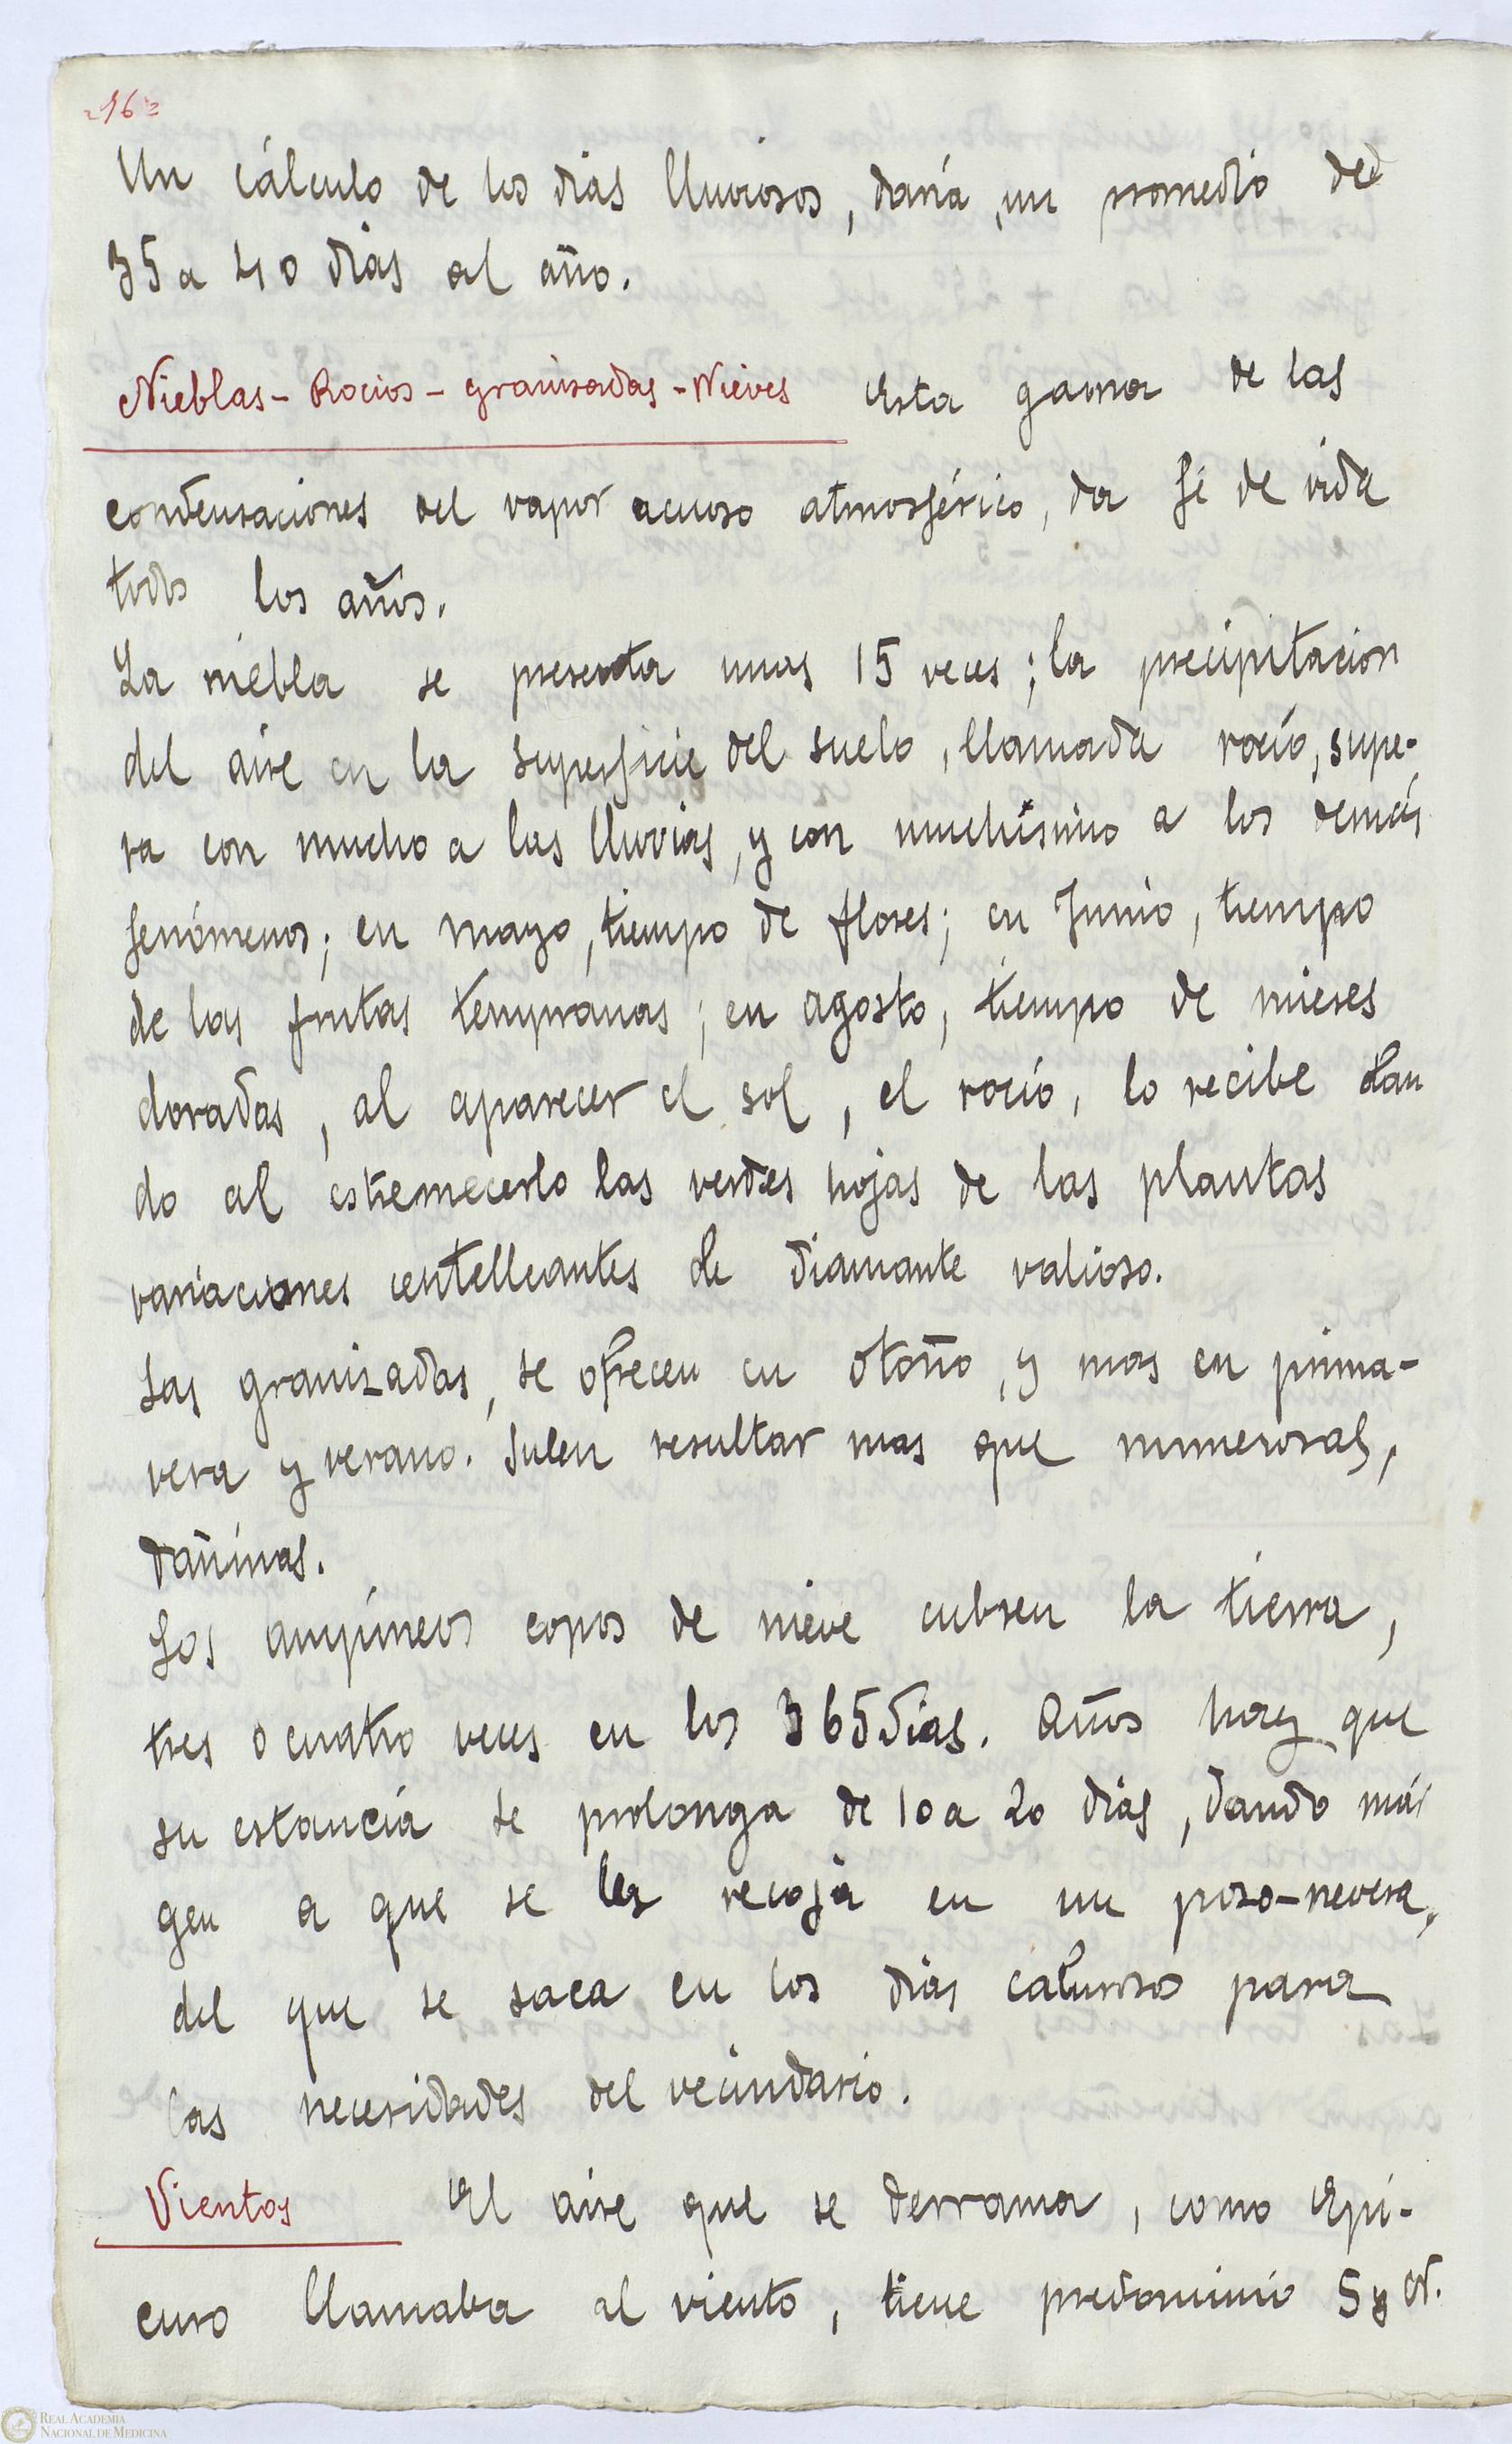 =16=
Un cálculo de los dias lluviosos, daría, un promedio de
35 a 40 dias al año.
Nieblas - Rocios - granizadas - Nieves Esta gama de las
condensaciones del vapor acuoso atmosférico, da fé de vida
todos los años.
La niebla se presenta unas 15 veces; la precipitacion
del aire en la superficie del suelo, llamada rocío, supe-
ra con mucho a las lluvias, y con muchísimo a los demás
fenómenos; en mayo, tiempo de flores; en Junio, tiempo
de las frutas tempranas; en agosto, tiempo de mieses
doradas, al aparecer el sol, el rocío, lo recibe dan
do al estremecerlo las verdes hojas de las plantas
variaciones centelleantes de diamante valioso.
Las granizadas, se ofrecen en otoño, y mas en prima-
vera y verano. Sulen resultar mas que numerosas,
dañinas.
Los ampíneos copos de nieve cubren la tierra,
tres o cuatro veces en los 365 dias. Años hay que
su estancia se prolonga de 10 a 20 dias, dando már
gen a que se la recoja en un pozo-nevera,
del que se saca en los dias caluroso para
las necesidades del vecindario.
Vientos El aire que se derrama, como Epi-
curo llamaba al viento, tiene predominio S y N.
REAL ACADEMIA
NACIONAL DE MEDICINA